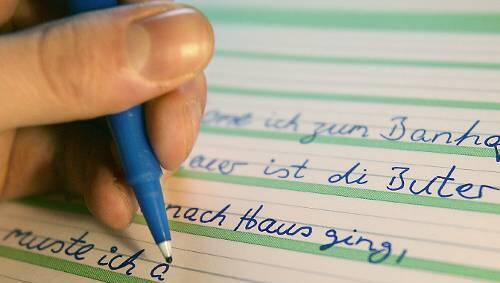 ich zum Banho
ist di Buter
nach Haus ging,
muste ich a